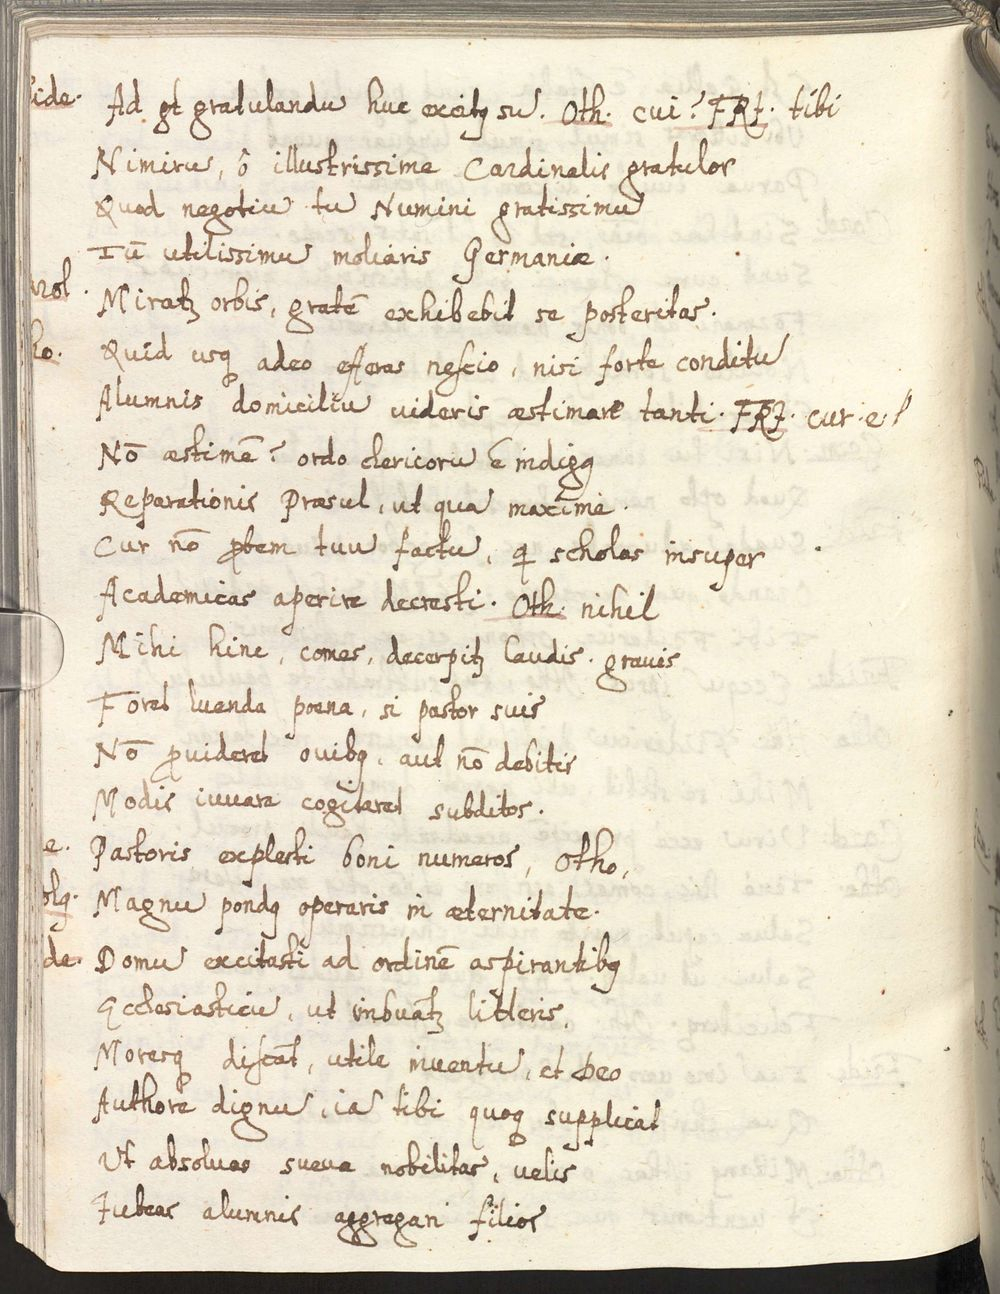 ide. Ad gt gratulandū huc excitꝰ sū. Oth. cui? FRI. tibi
Nimirū, ô illustrissime Cardinalis gratulor
Quod negotiū tu Numini gratissimū
Tū utilissimū moliaris Germaniæ.
arol. Miratʒ orbis, gratē exhibebit se posteritas.
ho. Quid usq adeo efferas nescio, nisi forte conditū
Alumnis domiciliū uideris æstimare tanti. FRI. cur .e.
Nō æstimē? ordo clericorū ē indigꝰ
Reparationis Præsul, ut qua maxīme.
Cur nō ꝓbem tuū factū, qͥ scholas insuper
Academicas aperire decresti. Oth. nihil
Mihi hinc, comes, decerpitʒ laudis. grauis
Foret luenda poena, si pastor suis
Nō ꝓuideret ouibꝰ, aut nō debitis
Modis iuuare cogitaret subditos.
e. Pastoris explesti boni numeros, Otho,
olꝰ. Magnū pondꝰ operaris in æternitatē.
de. Domū excitasti ad ordinē aspirantibꝰ
Ecclesiasticū, ut imbuātʒ litteris,
Moresq discāt, utile inuentū, et Deo
Authore dignū, iā tibi quoq supplicat
Ut absoluas sueua nobilitas, uelis
Iubeas alumnis aggregari filios